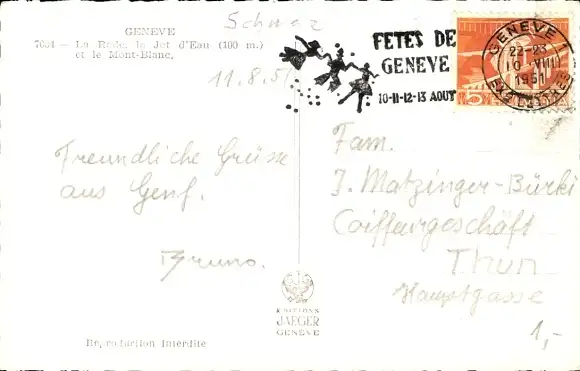 GENEVE
7034 — La Rade, le Jet d'Eau (100 m.)
et le Mont-Blanc.
Schweiz
11.8.51
FETES DE
GENEVE
10-11-12-13 AOUT
GENEVE 1
22-23
10 VIII
1951
EXP. LETTRES
5
Freundliche Grüsse
aus Genf.
Bruno.
Fam.
J. Matzinger-Bürki
Coiffeurgeschäft
Thun
Hauptgasse
1,-
EDITIONS
JAEGER
GENEVE
Reproduction Interdite